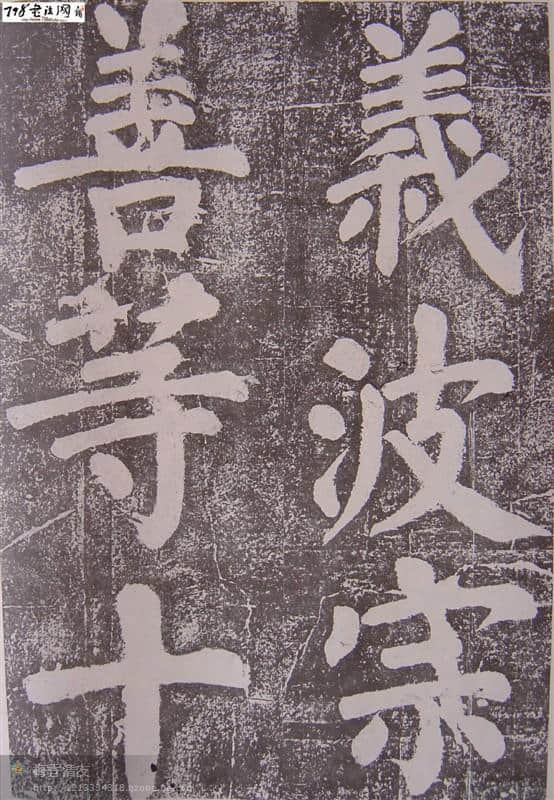 義波宗
善等十
798书法网